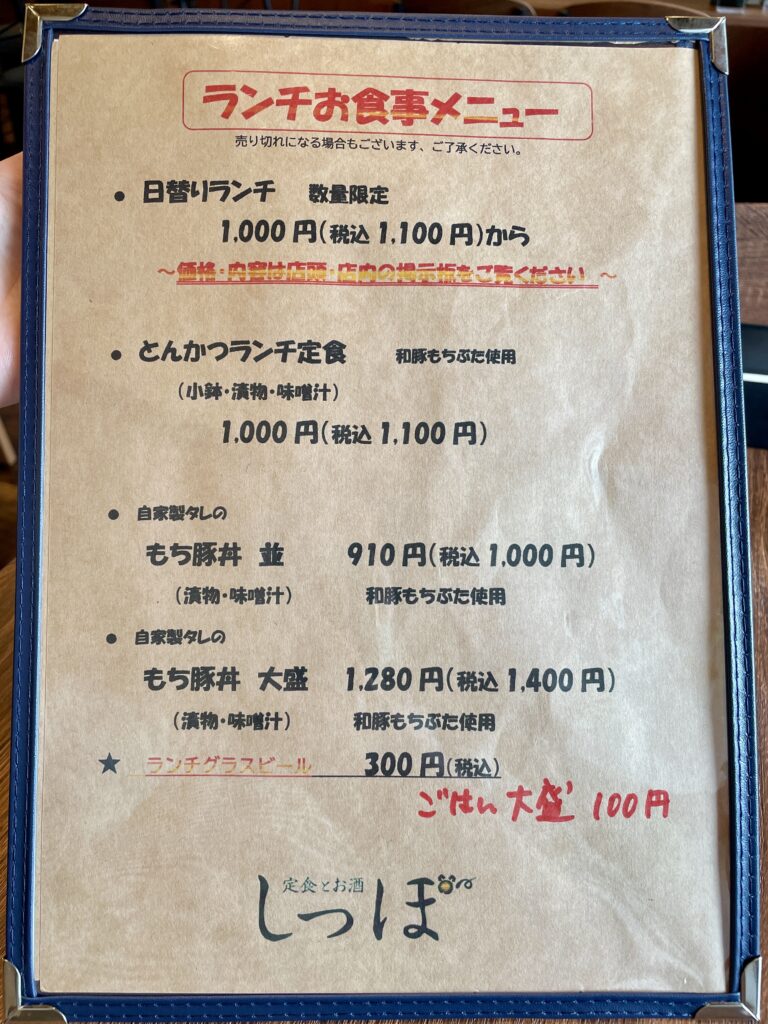 ランチお食事メニュー
売り切れになる場合もございます、ご了承ください。
● 日替りランチ 数量限定
1,000円(税込1,100円)から
～価格・内容は店頭・店内の掲示板をご覧ください ～
● とんかつランチ定食 和豚もちぶた使用
(小鉢・漬物・味噌汁)
1,000円(税込1,100円)
● 自家製タレの
もち豚丼 並 910円(税込1,000円)
(漬物・味噌汁) 和豚もちぶた使用
● 自家製タレの
もち豚丼 大盛 1,280円(税込1,400円)
(漬物・味噌汁) 和豚もちぶた使用
★ ランチグラスビール 300円(税込)
ごはん大盛 100円
定食とお酒
しっぽ